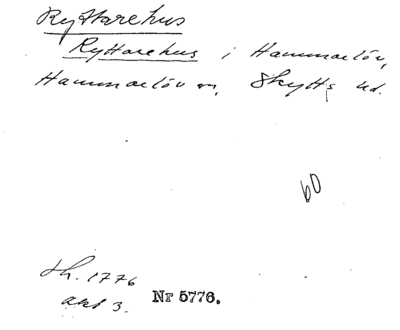 Ryttarehus
Ryttarehus i Hammarlöv,
Hammarlöv sn, Skytts hd.
60
Sk. 1776
akt 3. Nr 5776.